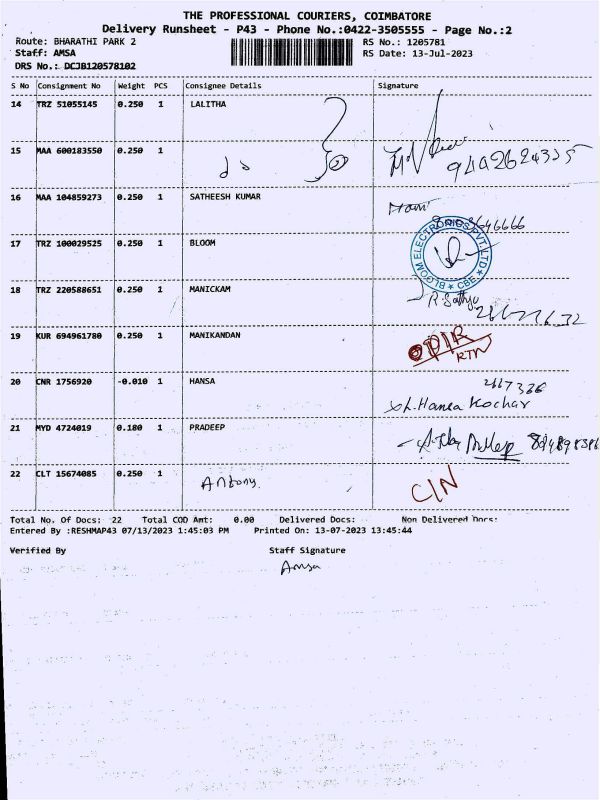 THE PROFESSIONAL COURIERS, COIMBATORE
Delivery Runsheet - P43 - Phone No.:0422-3505555 - Page No.:2
Route: BHARATHI PARK 2 RS No.: 1205781
Staff: AMSA RS Date: 13-Jul-2023
DRS No.: DCJB120578102
S No Consignment No Weight PCS Consignee Details Signature
14 TRZ 51055145 0.250 1 LALITHA
15 MAA 600183550 0.250 1
16 MAA 104859273 0.250 1 SATHEESH KUMAR Mani
17 TRZ 100029525 0.250 1 BLOOM BLOOM ELECTRONICS PVT. LTD ★ CBE ★
18 TRZ 220588651 0.250 1 MANICKAM R. Sathya
19 KUR 694961780 0.250 1 MANIKANDAN RTN
20 CNR 1756920 -0.010 1 HANSA 2617326
L. Hansa Kochar
21 MYD 4724019 0.180 1 PRADEEP
22 CLT 15674085 0.250 1 Antony C/N
Total No. Of Docs: 22 Total COD Amt: 0.00 Delivered Docs: Non Delivered Docs:
Entered By :RESHMAP43 07/13/2023 1:45:03 PM Printed On: 13-07-2023 13:45:44
Verified By Staff Signature
Amsa